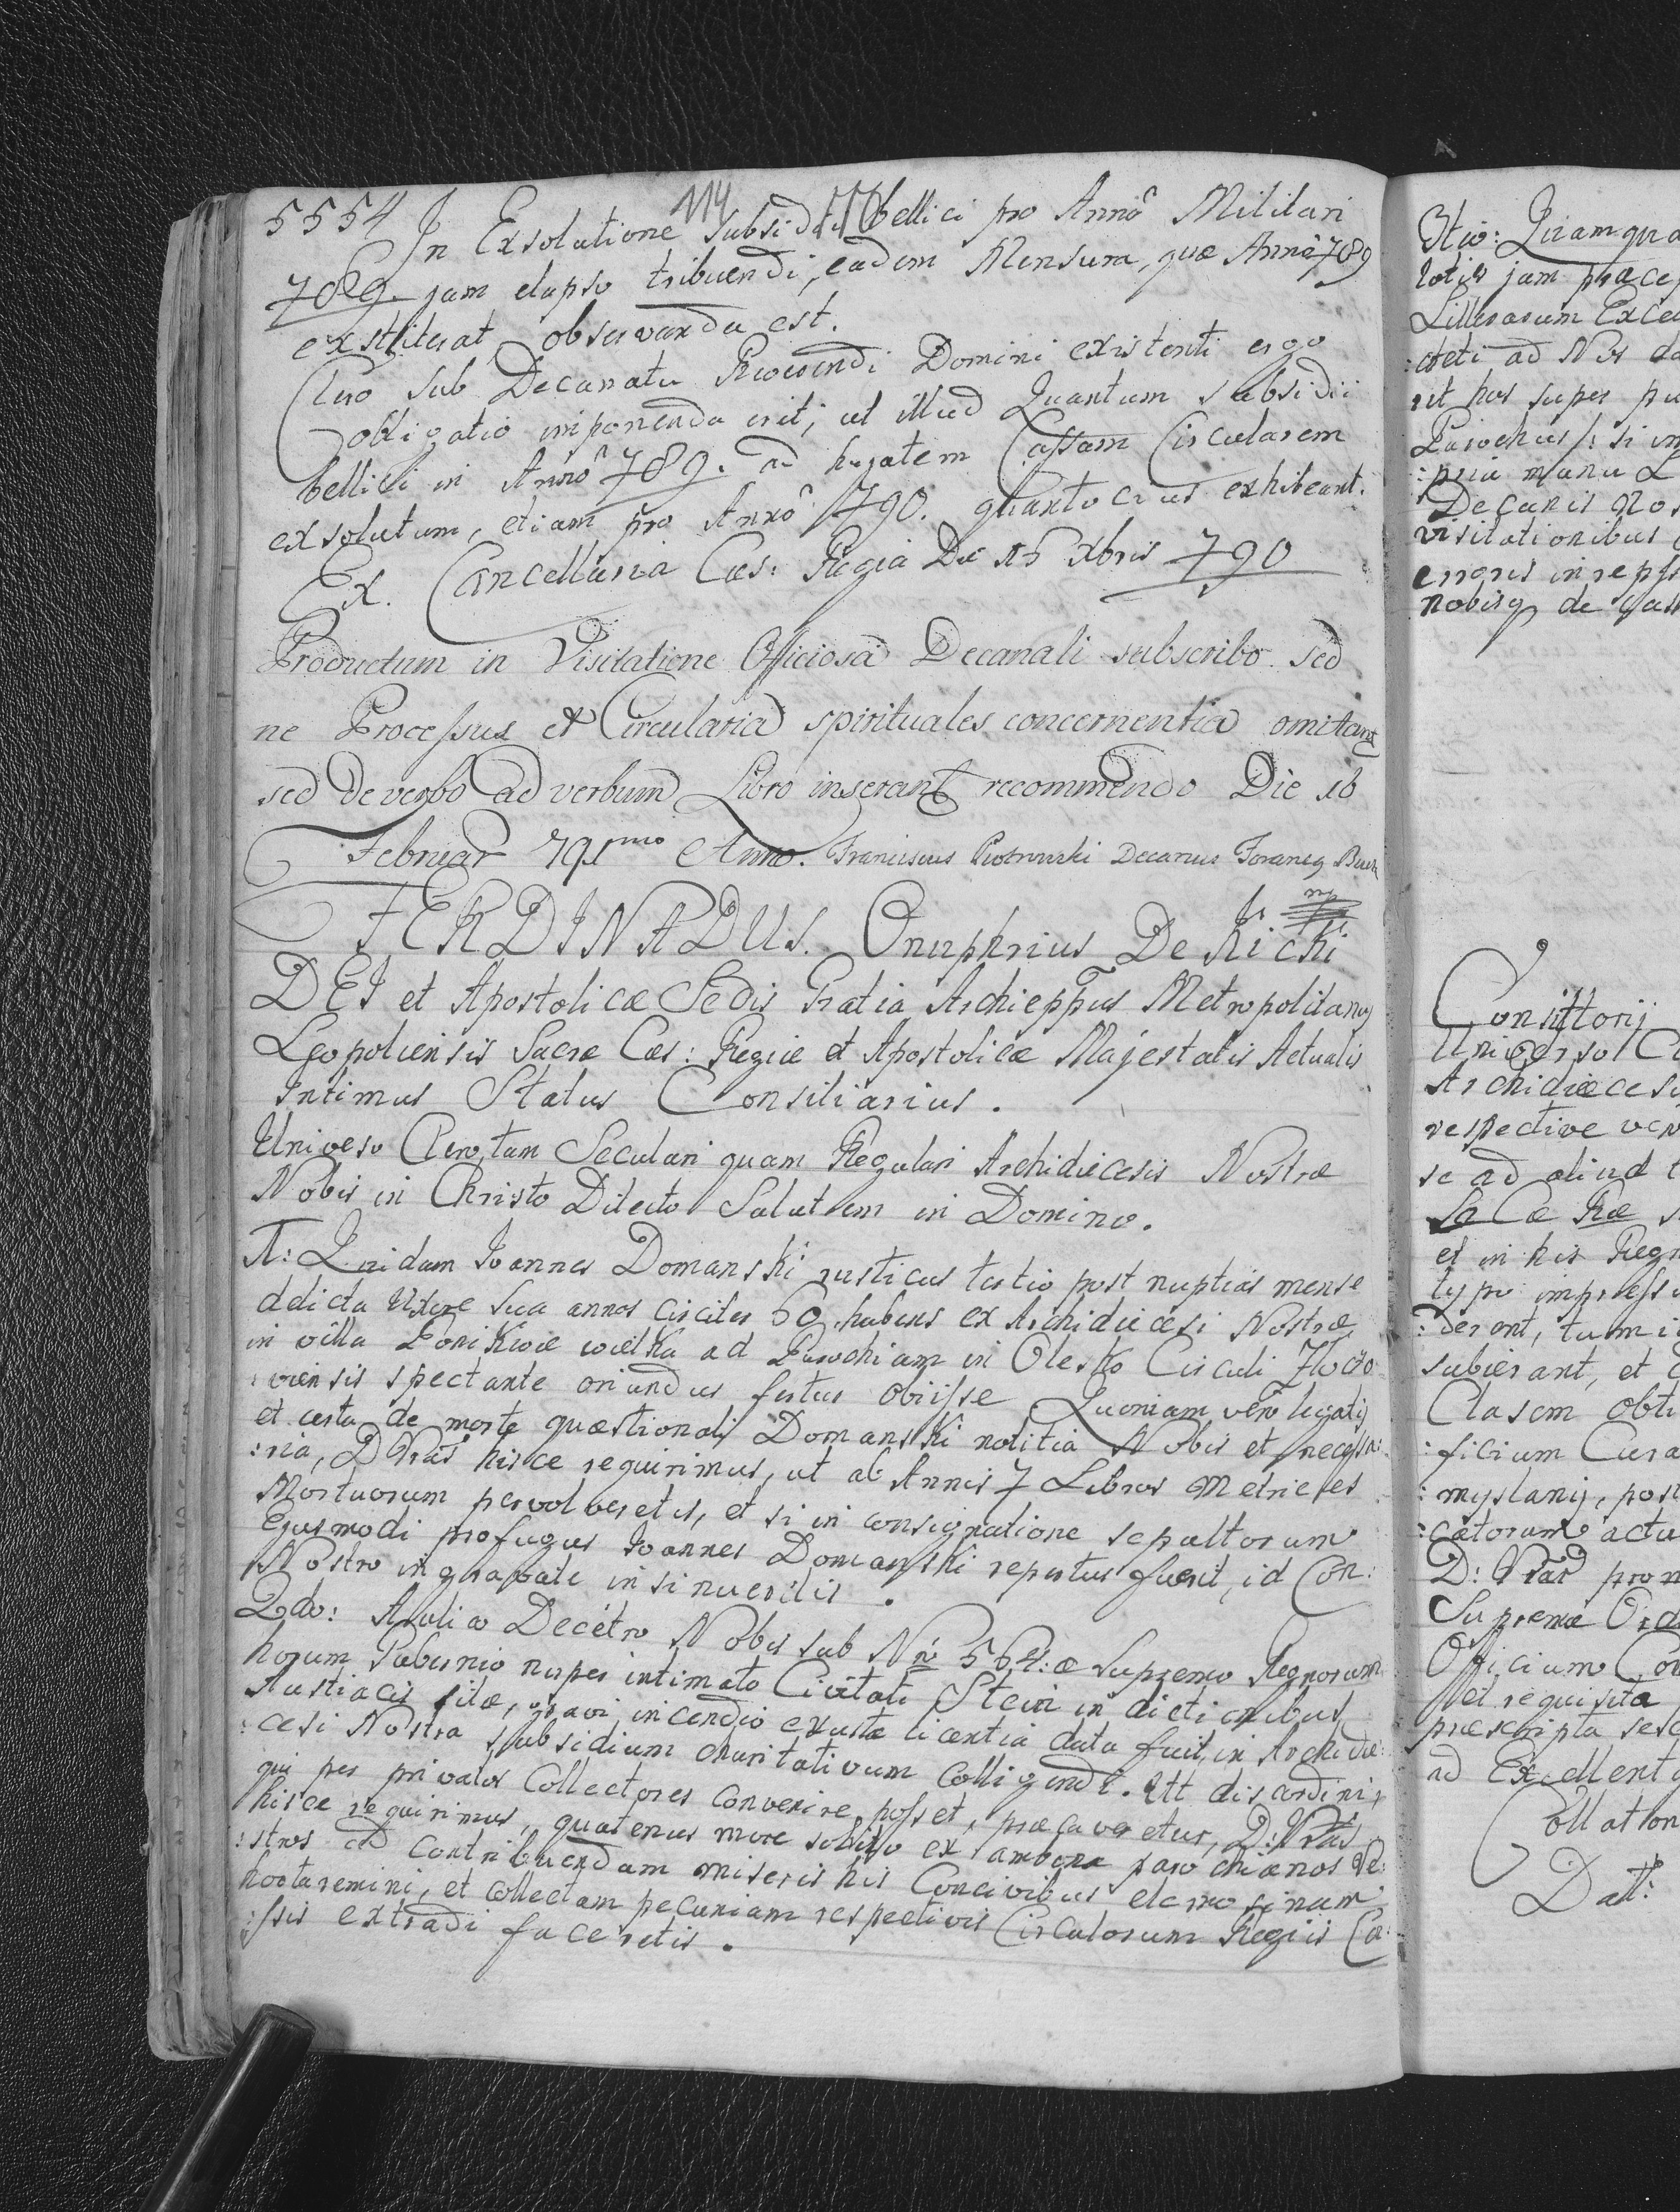 5554 114
In Exsolutione Subsidii bellici pro Annô Militari
789. jam elapso tribuendi, eadem Mensura, quæ Annô 789
exstiterat observanda est.
Clero sub Decanatu Reverendi Domini existenti ergo
obligatio imponenda erit, ut illud Quantum subsidii
bellici in Annô 789. ad hujatem Cassam Circularem
exsolutum, etiam pro Annô 790. quantocius exhibeant.
Ex Cancellaria Cæs: Regia Die 15 Xbris 790
Productum in Visitatione Officiosa Decanali subscribo sed
ne Processus et Circularia spirituales concernentia omitant
sed de verbo ad verbum Libro inserant recommendo Die 16
Februar 791mo Anno. Franciscus Piotrowski Decanus Foraneq
mp
FERDINADUS. Onuphrius De Kichi
DEI et Apostolicæ Sedis Gratia Archieppus Metropolitanq
Leopoliensis Sacræ Cæs: Regiæ et Apostolicæ Majestatis Actualis
Intimus Status Consiliarius.
Universo Clero, tam Seculari quam Regulari Archidiæcesis Nostræ
Nobis in Christo Dilecto Salutem in Domino.
Quidam Joannes Domanski rusticus tertio post nuptias mense
delicta Uxore sua annos circiter 60 habens ex Archidiæcesi Nostræ
in villa Ponikwie wielka ad Parochiam in Olesko Circuli Zloczo
:viensis spectante oriundus fertur obiisse Quoniam vero legalis
et certa de morte quæstionati Domanski notitia Nobis et necessa:
:ria, D Vras hisce requirimus, ut ab Annis 7 Libros Metrices
Mortuorum pervolveretis, et si in consignatione sepultorum
Ejusmodi profugus Joannes Domanski repertus fuerit, id Con:
Nostro ingravate insinueritis.
2do: Aulico Decétro Nobis sub Nrô 564: æ Supremo Regnorum
horum Gubernio nuper intimato Civitati Stein in dictionibus
Austiacis sitæ, gravi incendio exustæ licentia data fuit, in Archidiæ:
:cesi Nostra subsidium charitativum Colligendi. Ut discordini,
qui per privatos Collectores convenire posset, præcaveretur, D: Vras
hisce requirimus, quatenus more solito ex ambona parochianos Ve:
:stros ad contribuendam miseris his Concivibus elemosinam
hortaremini, et collectam pecuniam respectivis Circulorum Regiis Ca:
:ssis extradi faceretis.
3tio: Quamqua
toties jam præce
Litterarum Exce
:creti ad Nos
ut hos super
Parochus
:pria manu
Decanis Nos
visitationibus
erroris irreps
nobisq de
Consittorij
Universo C
Archidiæcesi
respective ven
se ad aliud
Sa Cæ Ræ
et in his Regn
typo impress
:derant, tum
subierant, et
Clasem obti
:ficium Cura
:myslanij, post
:catorum actu
D: Vras prom
Supremæ Ord
Officium Con
Vel requisita
præscripta sese
ad Excellent
Collation
Datt: